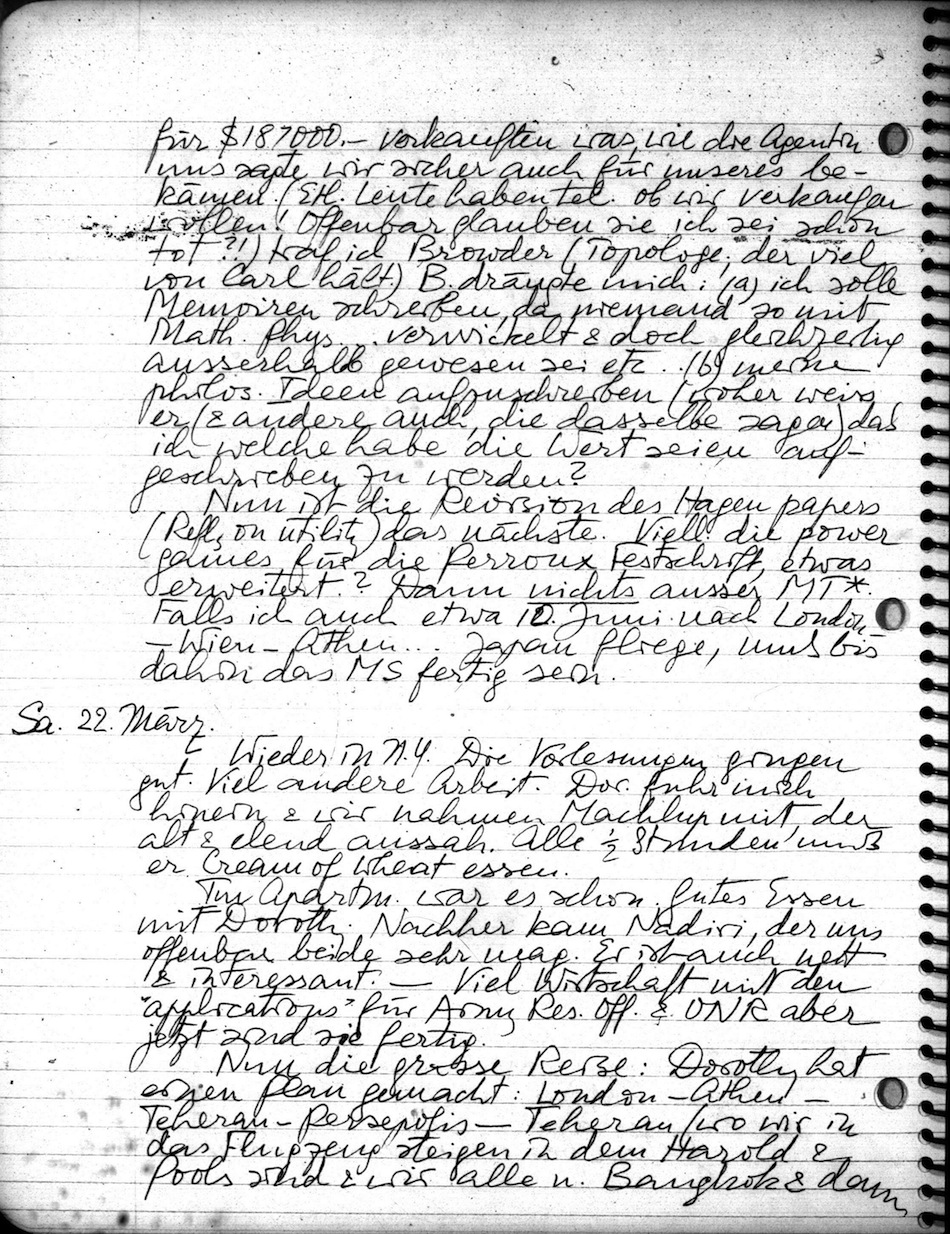 für $187000.– verkauften was, wie die Agentin
uns sagte wir sicher auch für unseres be-
kämen. (Etl. Leute haben tel. ob wir verkaufen
wollen! Offenbar glauben sie ich sei schon
tot?!) traf ich Browder (Topologe, der viel
von Carl hält.) B. drängte mich: (a) ich solle
Memoiren schreiben, da niemand so mit
Math. Phys. .. verwickelt & doch gleichzeitig
ausserhalb gewesen sei etc .. (b) meine
philos. Ideen aufzuschreiben (woher weiss
er (& andere auch, die dasselbe sagen) daß
ich welche habe die Wert seien auf-
geschrieben zu werden?
Nun ist die Revision des Hagen papers
(Refl. on utility) das nächste. Viell. die power
games für die Perroux Festschrift, etwas
erweitert.? Dann nichts ausser MT*.
Falls ich auch etwa 10. Juni nach London
– Wien – Athen ... Japan fliege, muß bis
dahin das MS fertig sein.
Sa. 22. März.
Wieder in N.Y. Die Vorlesungen gingen
gut. Viel andere Arbeit. Dor. fuhr mich
hinein & wir nahmen Machlup mit, der
alt & elend aussah. Alle ½ Stunden muß
er Cream of Wheat essen.
Im Apartm. war es schon. Gutes Essen
mit Doroth. Nachher kam Nadiri, der uns
offenbar beide sehr mag. Er ist auch nett
& interessant. — Viel Wirtschaft mit den
"applications" für Army Res. Off. & ONR aber
jetzt sind sie fertig.
Nun die grosse Reise: Dorothy hat
einen Plan gemacht: London – Athen –
Teheran – Persepolis – Teheran (wo wir in
das Flugzeug steigen in dem Harold &
Pools sind & wir alle n. Bangkok & dann